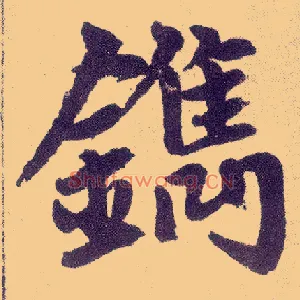 鐫
Shufawang.CN